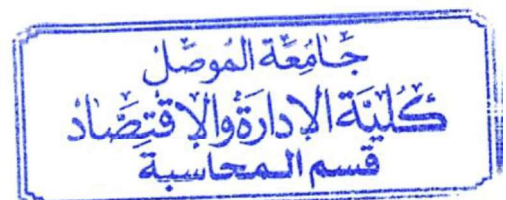 جَامِعَة المُوصَل
كُليَّة الإدارَة وَالاقتِصَاد
قسم المحاسبة